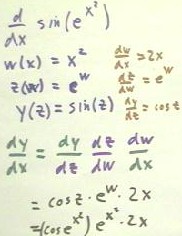 d/dx sin(e^x²)
w(x) = x² dw/dx = 2x
z(w) = e^w dz/dw = e^w
y(z) = sin(z) dy/dz = cos z
dy/dx = dy/dz dz/dw dw/dx
= cos z · e^w · 2x
= (cos e^x²) e^x² · 2x